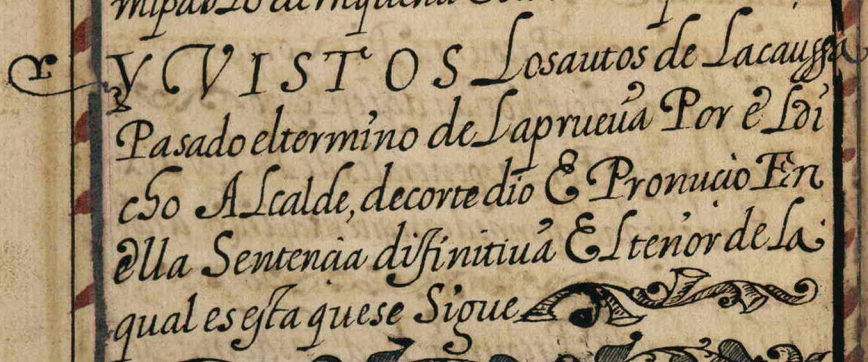 Y VISTOS Los autos de La caussa
Pasado el termino de La prueva Por el di
cho Alcalde, de corte dio E Pronucio En
ella Sentencia difinitiva El tenor de la
qual es esta que se Sigue